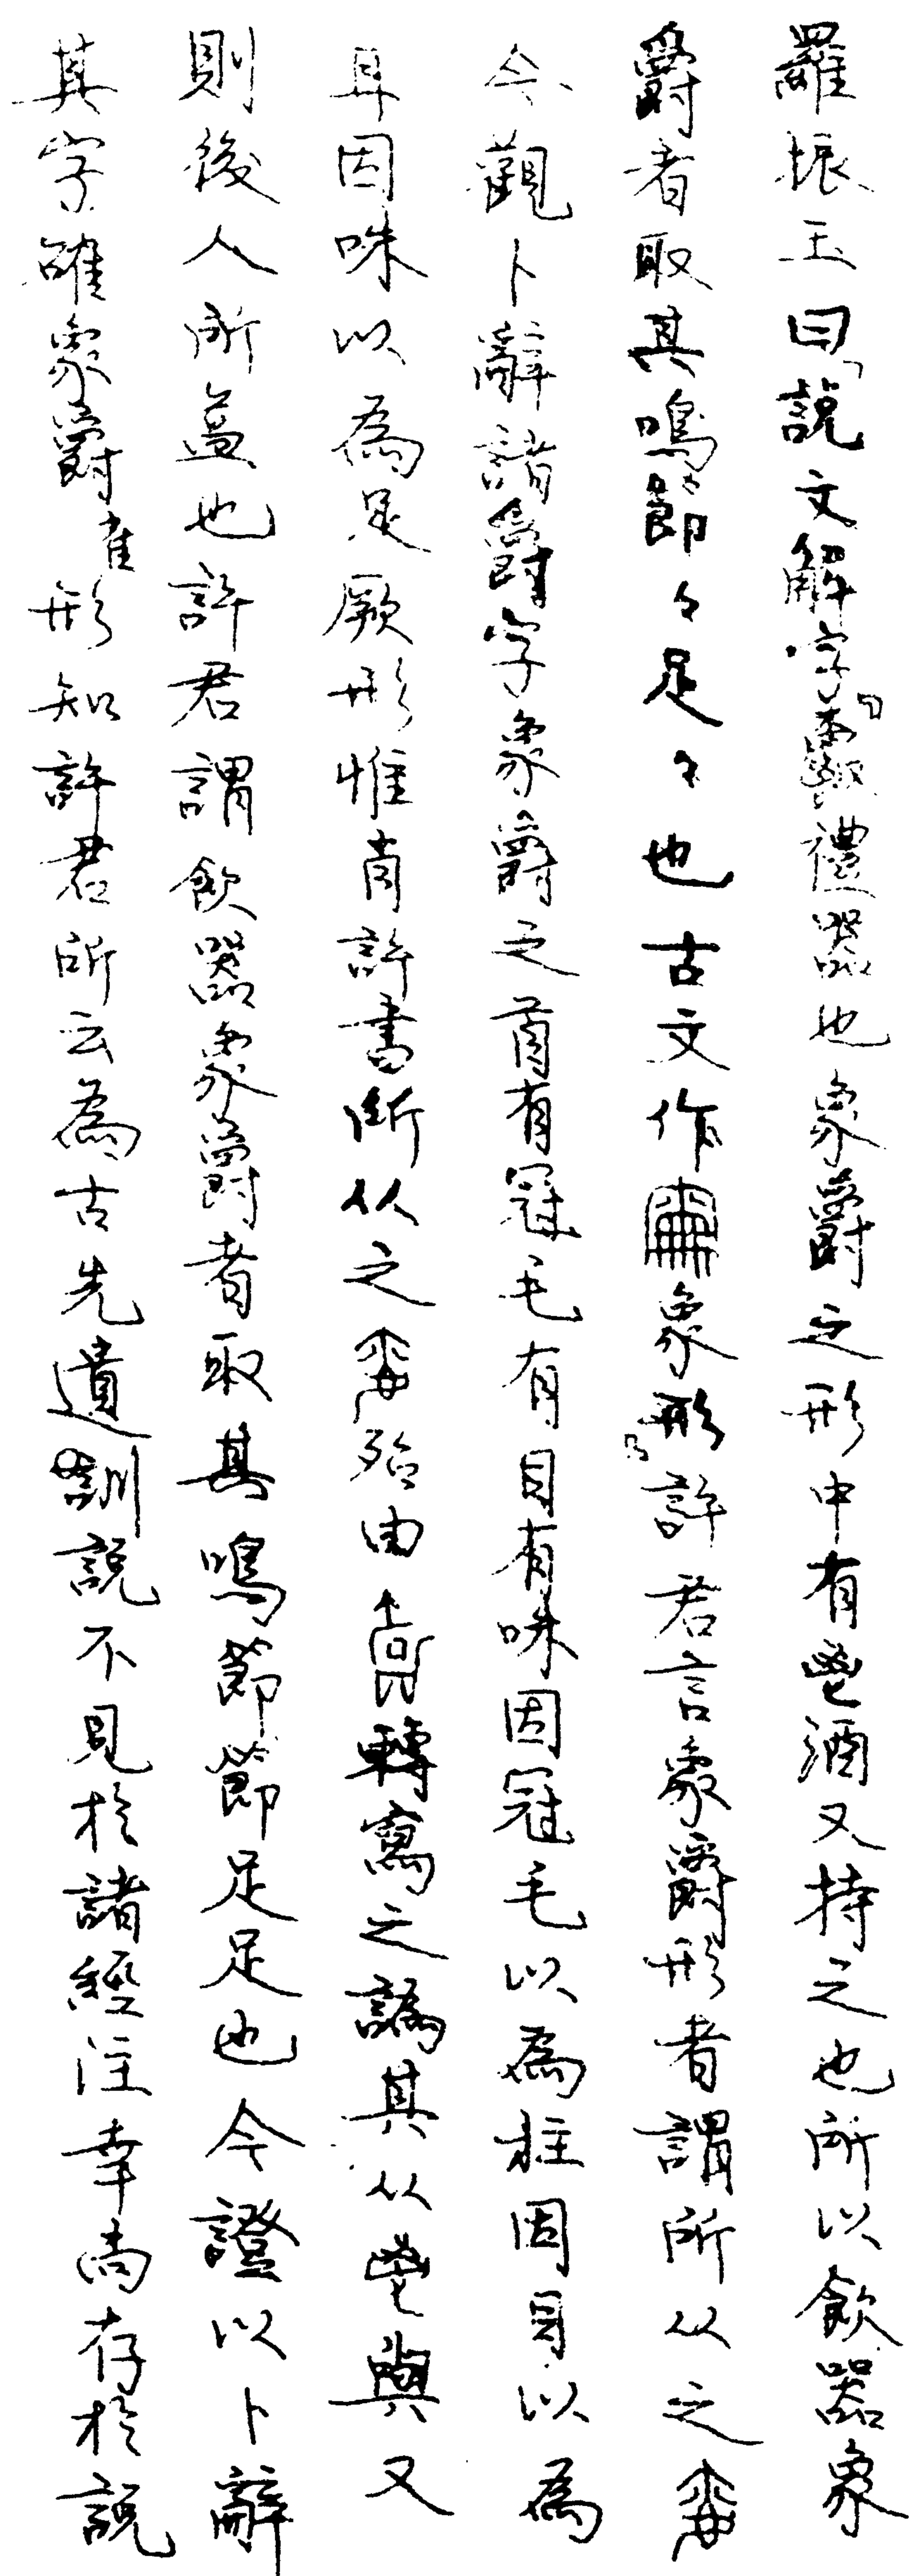 羅振玉曰「說文解字『爵禮器也象爵之形中有鬯酒又持之也所以飲器象
爵者取其鳴節々足々也古文作象形』許君言象爵形者謂所从之
今觀卜辭諸爵字象爵之首有冠毛有目有咮因冠毛以為柱因目以為
耳因咮以為足厥形惟肖許書所从之殆由轉寫之譌其从鬯與又
則後人所益也許君謂飲器象爵者取其鳴節節足足也今證以卜辭
其字確象爵雀形知許君所云為古先遺訓說不見於諸經注幸尚存於說